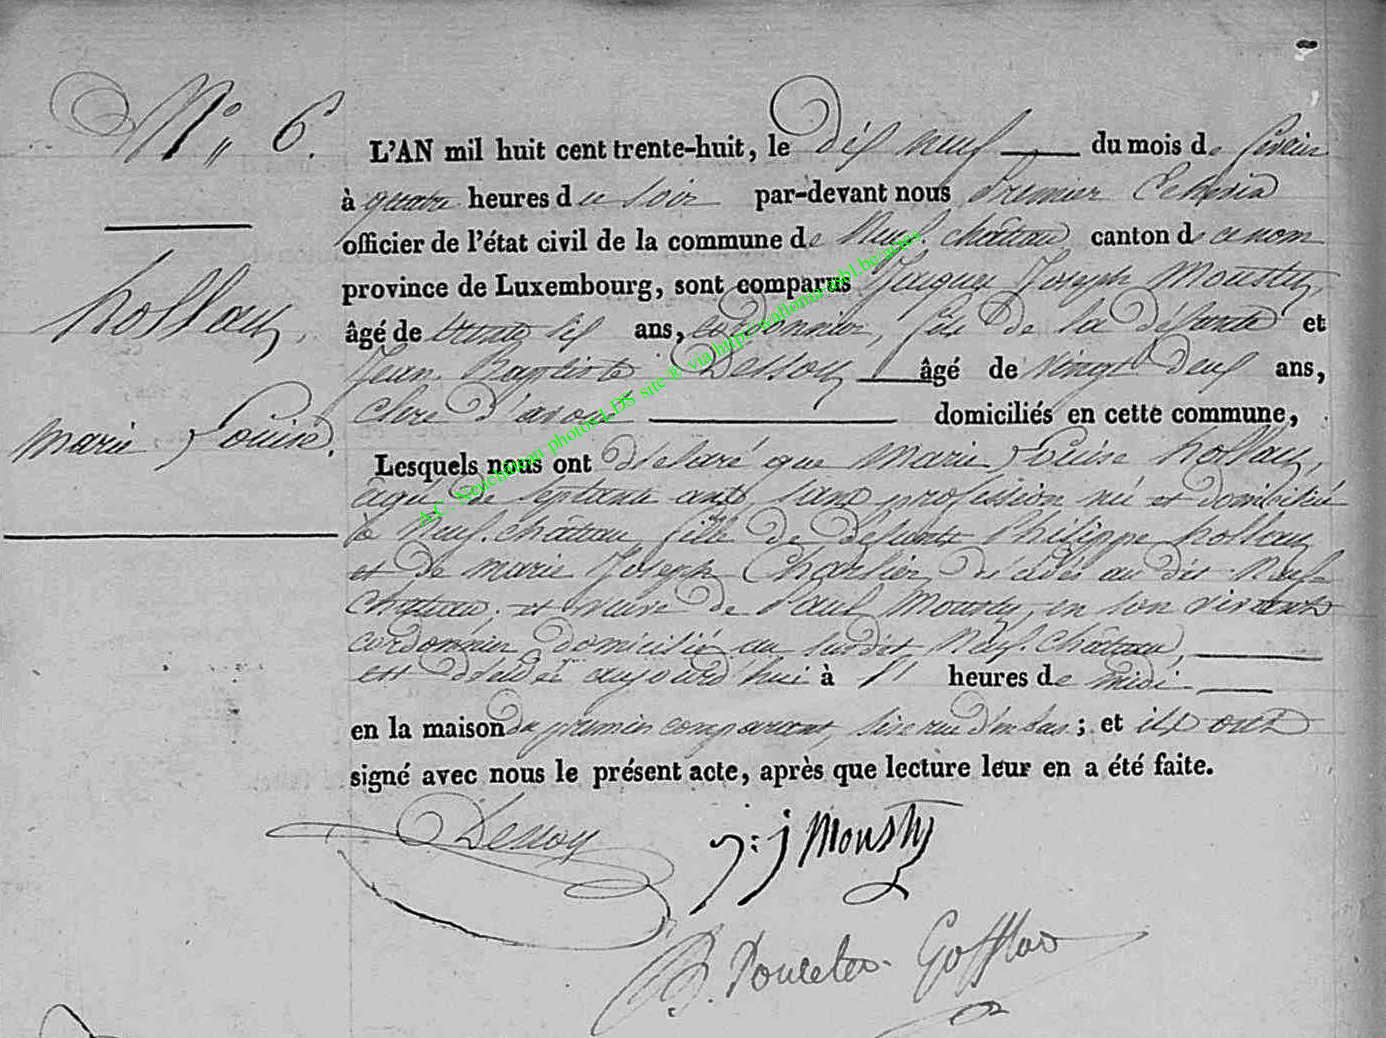 N° 6.
hollay,
Marie Louise.
L'AN mil huit cent trente-huit, le dix neuf du mois de février
à quatre heures du soir par-devant nous premier Echevin
officier de l'état civil de la commune de Neufchâteau canton de ce nom
province de Luxembourg, sont comparus Jacques Joseph Mousty,
âgé de trente six ans, cordonnier, fils de la défunte et
Jean Baptiste Dessoy âgé de vingt deux ans,
clerc d'avoué domiciliés en cette commune,
Lesquels nous ont déclaré que Marie Louise hollay,
agée de septante ans, sans profession, née et domiciliée
à Neufchâteau, fille de défunts Philippe hollay
et de marie Joseph Charlier, décédés au dit Neuf-
château, et veuve de Paul Mousty, en son vivant
cordonnier domicilié au susdit Neufchâteau,
est décédée aujourd'hui à heures de midi
en la maison du premier comparant, sise rue d'en bas ; et ils ont
signé avec nous le présent acte, après que lecture leur en a été faite.
Dessoy J: j Mousty
P. Poncelet-Gofflot
A.C. Neufchâteau photos LDS site ® via http://wallonia-asbl.be/actes